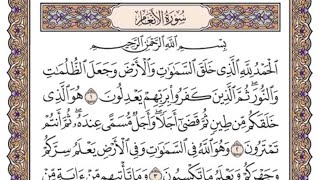 سُورَةُ الأَنْعَامِ
بِسْمِ اللَّهِ الرَّحْمَٰنِ الرَّحِيمِ
الْحَمْدُ لِلَّهِ الَّذِي خَلَقَ السَّمَٰوَٰتِ وَالْأَرْضَ وَجَعَلَ الظُّلُمَٰتِ
وَالنُّورَ ثُمَّ الَّذِينَ كَفَرُوا بِرَبِّهِمْ يَعْدِلُونَ ١ هُوَ الَّذِي
خَلَقَكُم مِّن طِينٍ ثُمَّ قَضَىٰ أَجَلًا وَأَجَلٌ مُّسَمًّى عِندَهُ ثُمَّ أَنتُمْ
تَمْتَرُونَ ٢ وَهُوَ اللَّهُ فِي السَّمَٰوَٰتِ وَفِي الْأَرْضِ يَعْلَمُ سِرَّكُمْ
وَجَهْرَكُمْ وَيَعْلَمُ مَا تَكْسِبُونَ ٣ وَمَا تَأْتِيهِم مِّنْ ءَايَةٍ مِّنْ